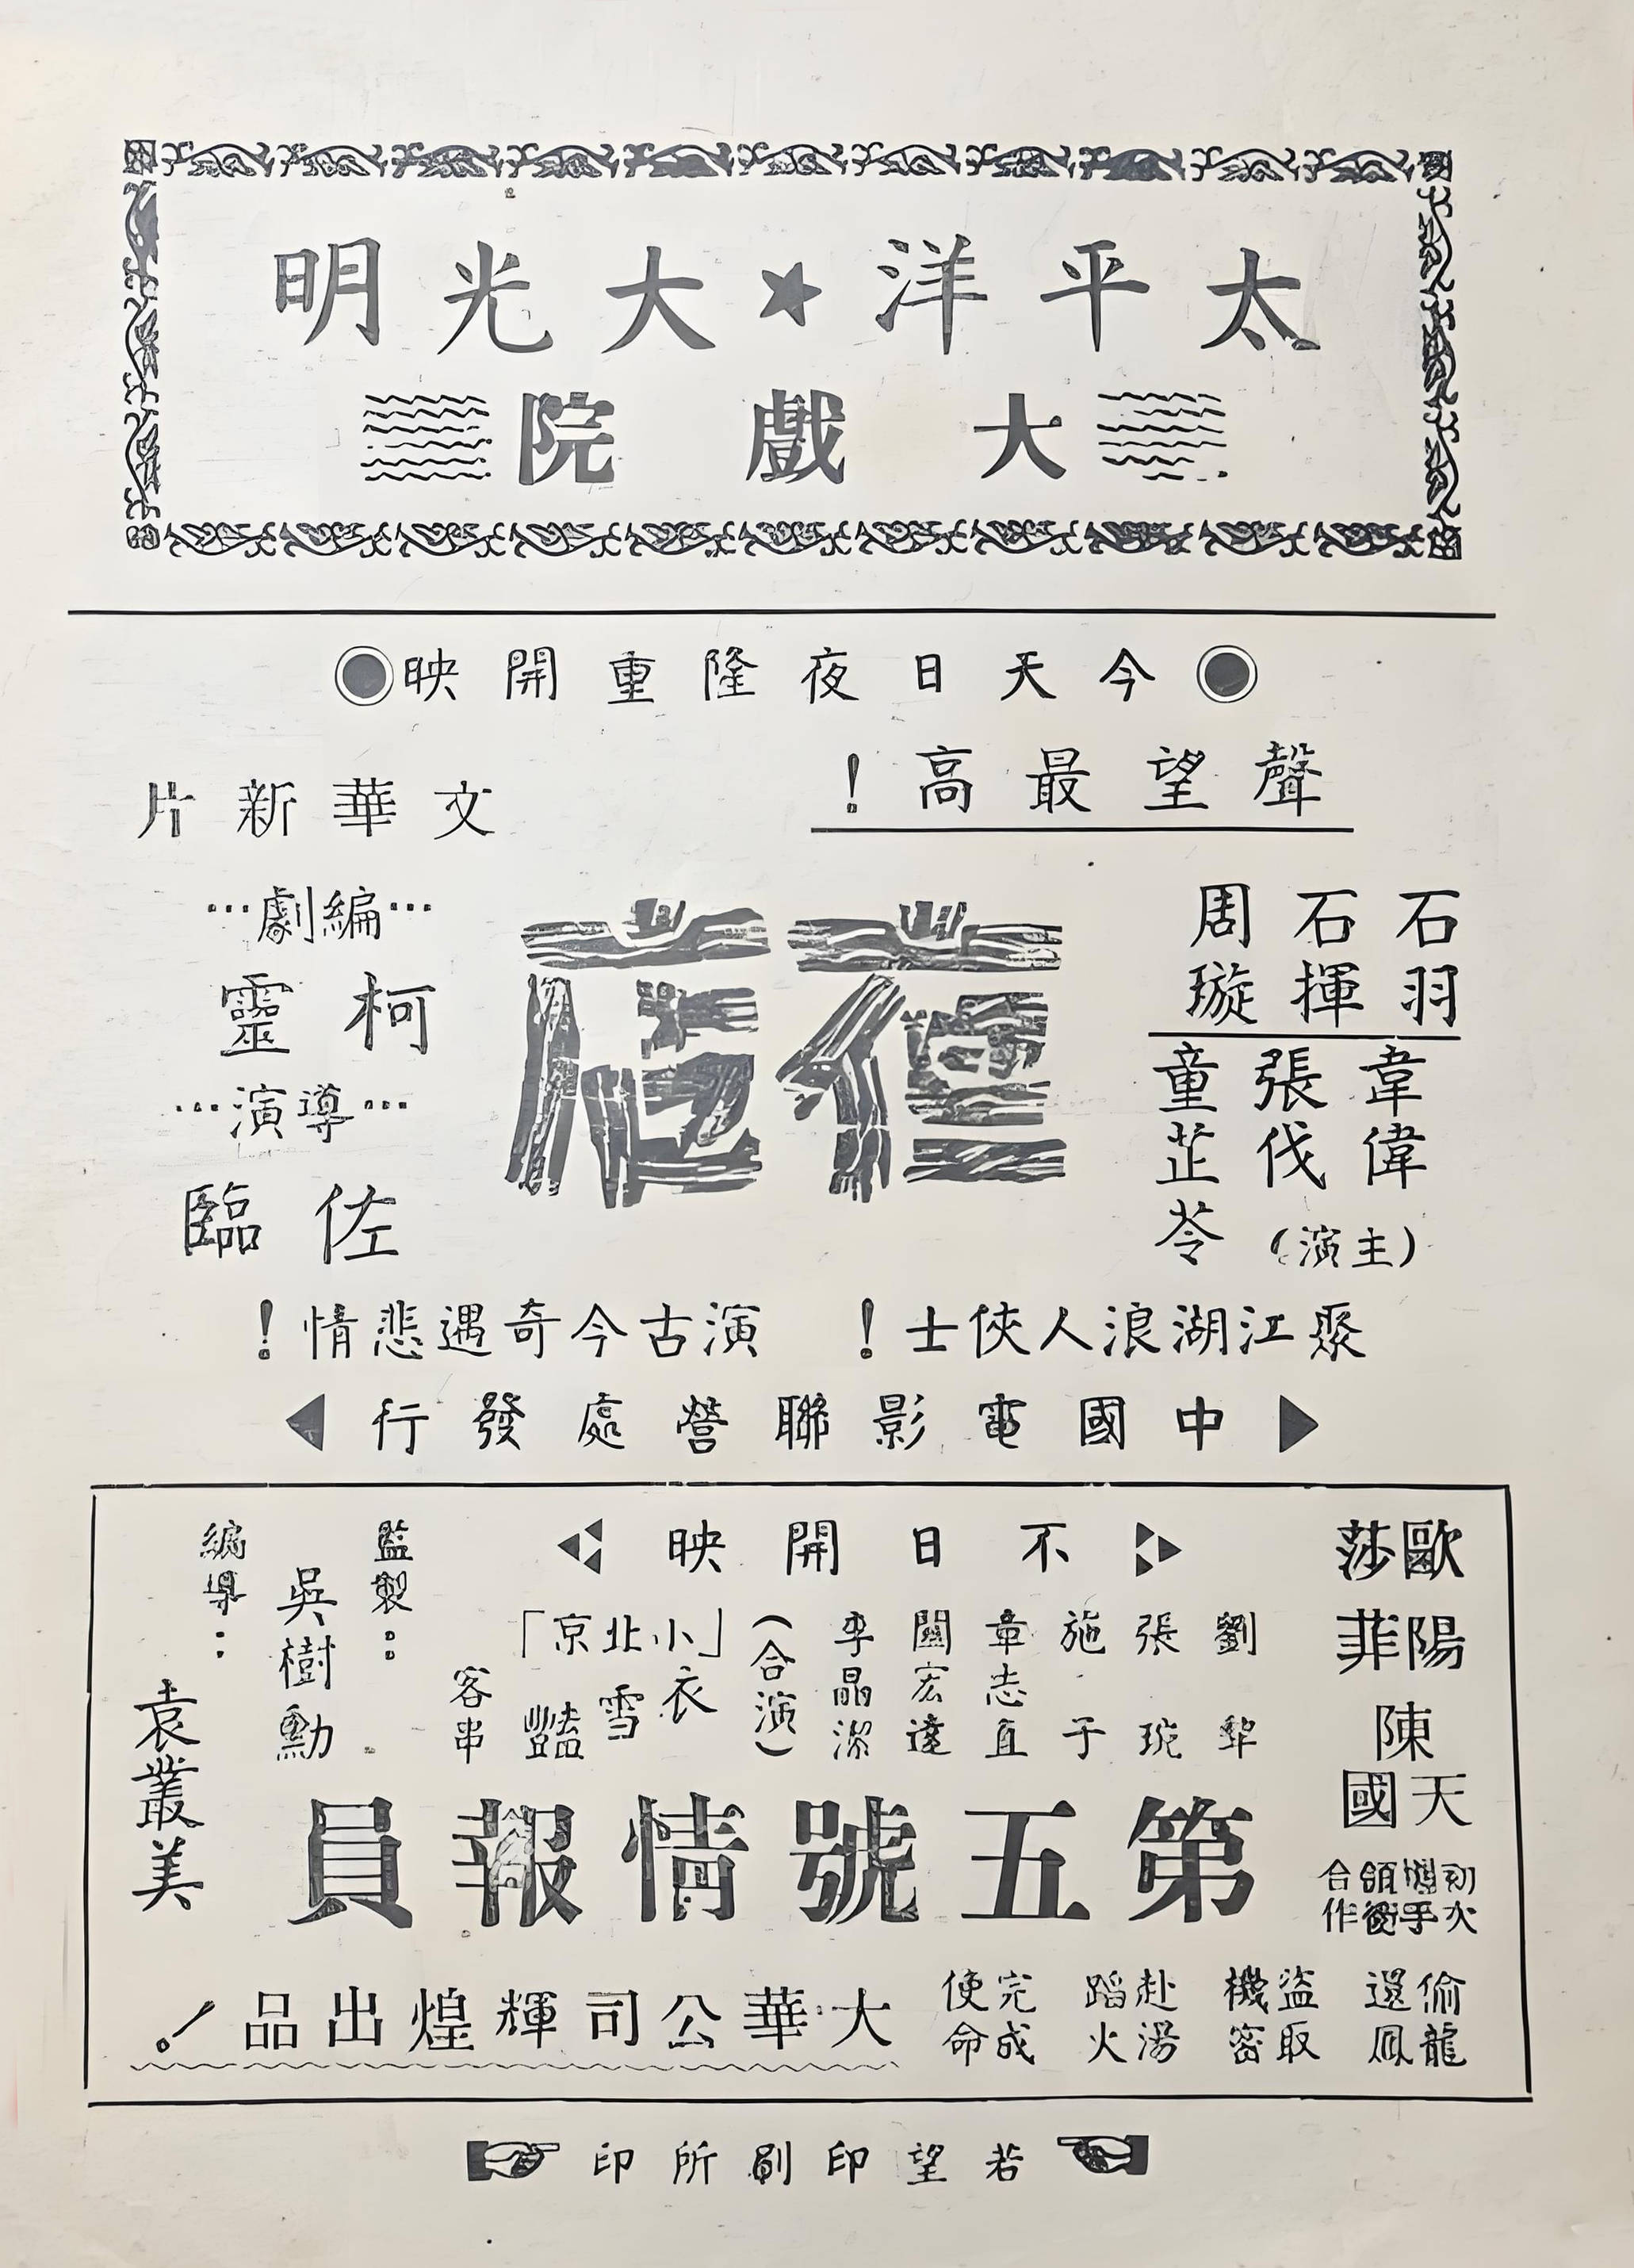 太平洋★大光明
大戲院
今天日夜隆重開映
聲望最高!
文華新片
石羽
石揮
周璇
韋偉
張伐
童芷苓
(主演)
夜店
…編劇…
柯靈
…導演…
佐臨
聚江湖浪人俠士!
演古今奇遇悲情!
中國電影聯營處發行
不日開映
歐陽莎菲
陳天國
初次攜手領銜合作
劉犂
張琬
施于
章志直
關宏達
李晶潔
(合演)
「小北京」
衣雪豔
客串
監製:
吳樹勳
編導:
袁叢美
第五號情報員
偷龍還鳳
盜取機密
赴湯蹈火
完成使命
大華公司輝煌出品!
若望印刷所印